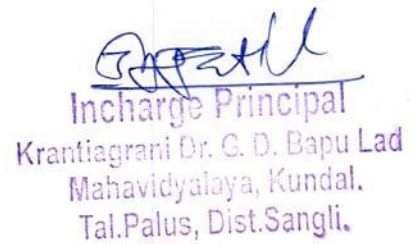 Incharge Principal
Krantiagrani Dr. G. D. Bapu Lad
Mahavidyalaya, Kundal.
Tal.Palus, Dist.Sangli.